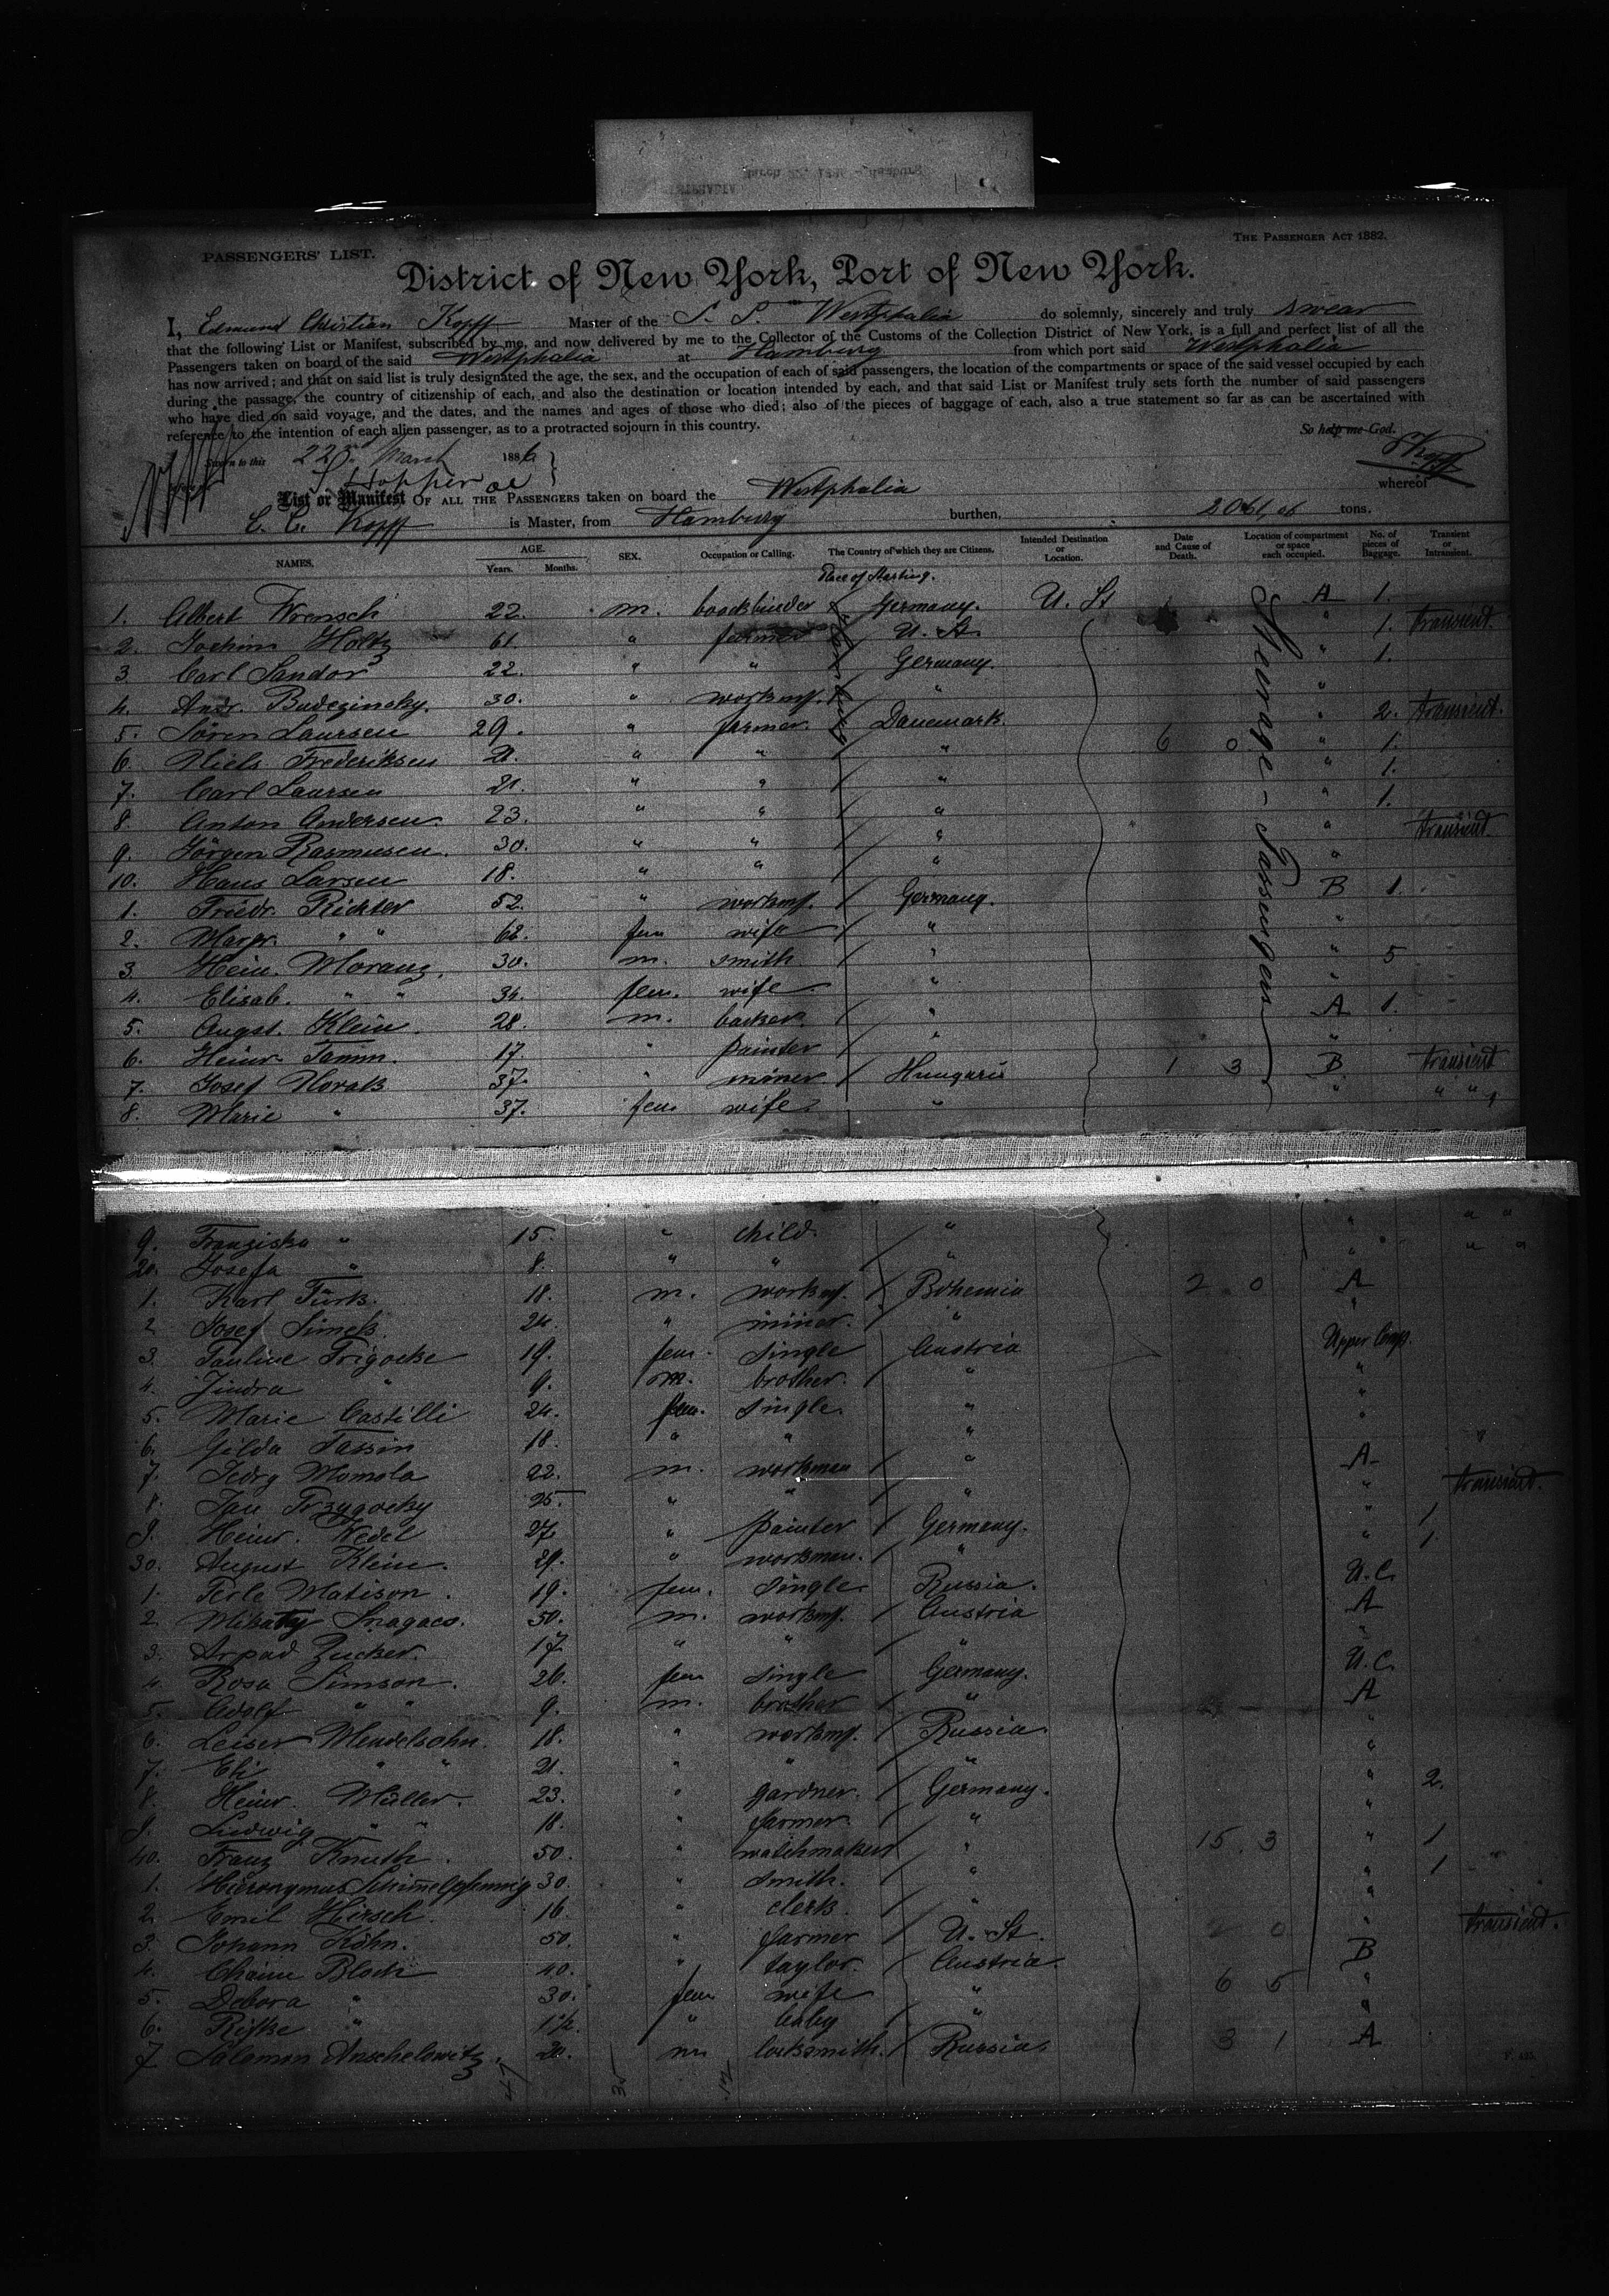 PASSENGERS' LIST.
THE PASSENGER ACT 1882.
District of New York, Port of New York.
I, Edmund Christian Kopff Master of the S. S. Westphalia do solemnly, sincerely and truly swear
that the following List or Manifest, subscribed by me, and now delivered by me to the Collector of the Customs of the Collection District of New York, is a full and perfect list of all the
Passengers taken on board of the said Westphalia at Hamburg from which port said Westphalia
has now arrived; and that on said list is truly designated the age, the sex, and the occupation of each of said passengers, the location of the compartments or space of the said vessel occupied by each
during the passage, the country of citizenship of each, and also the destination or location intended by each, and that said List or Manifest truly sets forth the number of said passengers
who have died on said voyage, and the dates, and the names and ages of those who died; also of the pieces of baggage of each, also a true statement so far as can be ascertained with
reference to the intention of each alien passenger, as to a protracted sojourn in this country.
So help me God.
Sworn to this 22d March 1886
Kopff
List or Manifest OF ALL THE PASSENGERS taken on board the Westphalia whereof
E. C. Kopff is Master, from Hamburg burthen, tons.
NAMES. AGE. Years. Months. SEX. Occupation or Calling. The Country of which they are Citizens. Intended Destination or Location. Date and Cause of Death. Location of compartment or space each occupied. No. of pieces of Baggage. Transient or Intransient.
Place of Starting.
Hamburg
Steerage-Passengers
1. Albert Wrensch 22. m. bookbinder Germany. U. St A 1.
2. Jochim Holtz 61. " farmer U. St. " 1. transient
3. Carl Sandor 22. " " Germany. " 1.
4. Andr. Budezinsky. 30. " workm. " "
5. Sören Laursen 29. " farmer. Danemark. " 2. transient.
6. Niels Frederiksen 21. " " " 6 0 " 1.
7. Carl Laursen 21. " " " " 1.
8. Anton Andersen. 23. " " " " 1.
9. Jörgen Rasmusen. 30. " " " " transient
10. Hans Larsen 18. " " " "
1. Friedr. Richter 52. " workm. Germany. B 1.
2. Margr. " " 62. fem wife " "
3. Hein. Moranz. 30. m. smith " " 5
4. Elisab. " " 34. fem. wife " "
5. Augst. Klein. 28. m. backer. " A 1.
6. Heinr. Tamm. 17. " painter " "
7. Josef Horak 37. " miner Hungaria 1 3 B transient
8. Marie " 37. fem wife " " " "
9. Franziska " 15. " child. " " " "
20. Josefa " 8. " " " " " "
1. Karl Türk. 18. m. workm. Bohemia 2 0 A
2 Josef Simek. 24. " miner. " "
3. Pauline Trigocke 19. fem. single Austria Upper Comp.
4. Jindra " 9. m. brother. " "
5. Marie Castilli 24. fem. single " "
6. Gilda Tassin 18. " " " "
7. Georg Momola 22. m. workman " A
8. Jan Trzygocky 25. " " " " transient.
9. Heinr. Wedel 27. " painter Germany. " 1
30. August Klein. 29. " workman. " " 1.
1. Perle Matison. 19. fem. single Russia. U. C.
2. 50. m. workm. Austria A
3. Arpad Zucker. 17. " " " "
4. Rosa Simson. 26. fem single Germany. U. C.
5. Adolf " " 9. m. brother " A
6. Leiser Mendelsohn. 18. " workm. Russia. "
7. Eli " " 21. " " " "
8. Heinr. Müller. 23. " gardner. Germany. " 2.
9. Ludwig " " 18. " farmer. " "
40. Franz Knuth. 50. " watchmaker " 15 3 " 1
1. Hieronymus Schimelpfennig 30. " smith. " " 1
2. Emil Hirsch. 16. " clerk. " "
3. Johann Köhn. 50. " farmer U. St. 2 0 " transient.
4. Chaim Bloch 40. " taylor. Austria. B
5. Debora " 30. fem wife " 6 5 "
6. Rifke " 1½ " baby " "
7. Salomon Anschelowitz. 20. m locksmith. Russia. 3 1 A